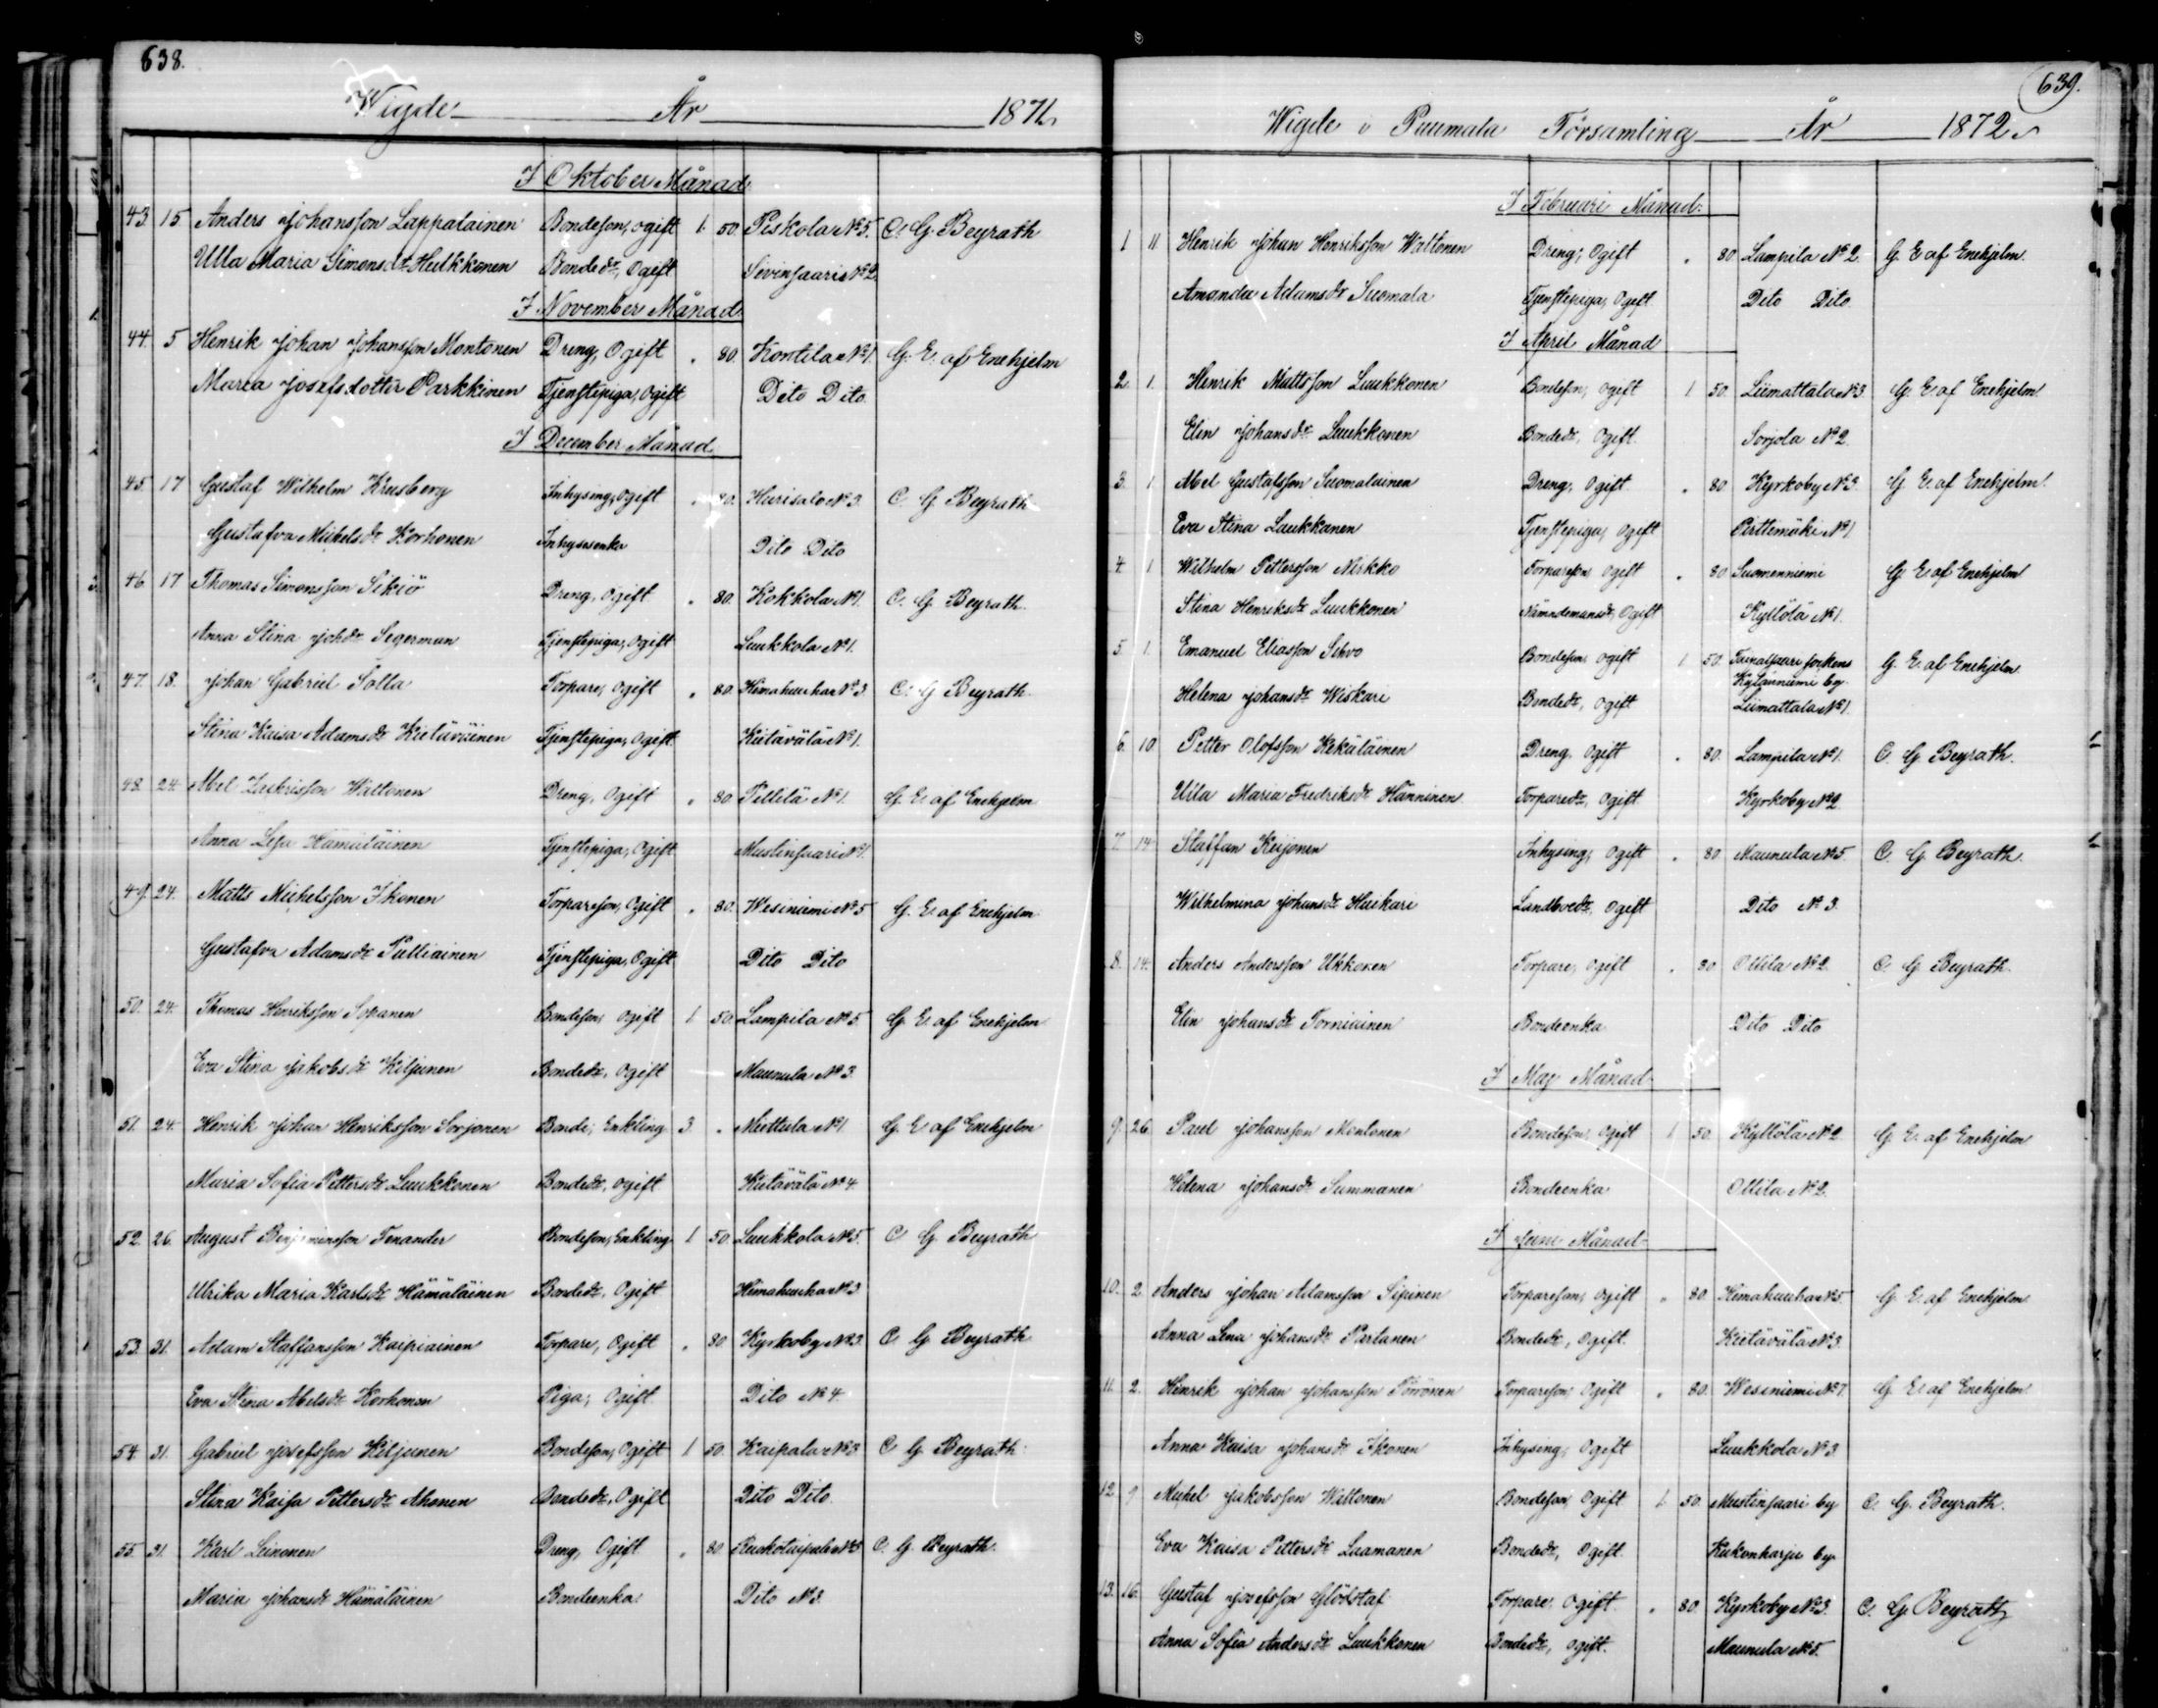 638.
Wigde År 1871.
I Oktober Månad.
43. 15. Anders Johansson Lappalainen Bondeson, ogift 1. 50. Piskola No 5. C. G. Beyrath
Ulla Maria Simonsdr Hulkkonen Bondedr, Ogift Sivinsaari No 2.
I November Månad.
44. 5 Henrik Johan Johansson Montonen Dreng, Ogift . 80. Kontila No 1. G. E. af Enehjelm
Maria Josefsdotter Parkkinen Tjenstepiga, Ogift Dito Dito.
I December Månad.
45. 17 Gustaf Wilhelm Krusberg Inhysing, Ogift . 80. Hurisalo No 3. C. G. Beyrath
Gustafva Mickelsdr Korhonen Inhysesenka Dito Dito
46. 17 Thomas Simonsson Sikiö Dreng, Ogift . 80. Kokkola No 1. C. G. Beyrath.
Anna Stina Johdr Segerman Tjenstepiga, Ogift Luukkola No 1.
47. 18. Johan Gabriel Solla Torpare, Ogift . 80. Himahuuha No 3 C. G. Beyrath.
Stina Kaisa Adamsdr Kietäväinen Tjenstepiga, Ogift Kietävälä No 1.
48. 24. Abel Zachrisson Waltonen Dreng, Ogift . 80 Pellilä No 1. G. E. af Enehjelm
Anna Lisa Hämäläinen Tjenstepiga, Ogift Mustinsaari No 1.
49. 24. Matts Michelsson Ikonen Torpareson, Ogift . 80. Wesiniemi No 5 G. E. af Enehjelm
Gustafva Adamsdr Pulliainen Tjenstepiga, Ogift Dito Dito
50. 24. Thomas Henriksson Sopanen Bondeson, Ogift 1. 50. Lampila No 5. G. E. af Enehjelm
Eva Stina Jakobsdr Kiljunen Bondedr, Ogift Maunula No 3.
51. 24. Henrik Johan Henriksson Sorjonen Bonde, Enkling 3. . Miettula No 1 G. E. af Enehjelm
Maria Sofia Pettersdr Luukkonen Bondedr, Ogift Kietävälä No 4.
52. 26. August Benjaminsson Tenander Bondeson, Enkling 1 50. Luukkola No 5. C. G. Beyrath
Ulrika Maria Karlsdr Hämäläinen Bondedr, Ogift Himahuuha No 3
53. 31. Adam Staffansson Kaipiainen Torpare, Ogift . 80. Kyrkoby No 3. C. G. Beyrath
Eva Stina Abelsdr Korhonen Piga, Ogift Dito No 4.
54. 31. Gabriel Josefsson Kiljunen Bondeson, Ogift 1 50. Kaipala No 3 C. G. Beyrath.
Stina Kaisa Pettersdr Ahonen Bondedr, Ogift Dito Dito.
55. 31. Karl Leinonen Dreng, Ogift . 80. Ruokotaipale No 3 C. G. Beyrath.
Maria Johansdr Hämäläinen Bondeenka Dito No 3.
639.
Wigde i Puumala Församling År 1872.
I Februari Månad.
1 11. Henrik Johan Henriksson Waltonen Dreng, Ogift . 80 Lampila No 2. G. E. af Enehjelm.
Amanda Adamsdr Suomala Tjenstepiga, Ogift Dito Dito.
I April Månad
2. 1. Henrik Mattsson Luukkonen Bondeson, Ogift 1 50. Liimattala No 3. G. E. af Enehjelm
Elin Johansdr Luukkonen Bondedr, Ogift Sorjola No 2.
3. 1 Abel Gustafsson Suomalainen Dreng, Ogift . 80 Kyrkoby No 3. G. E. af Enehjelm.
Eva Stina Laukkanen Tjenstepiga, Ogift Perttemäki No 1
4 1 Wilhelm Pettersson Nirkko Torpareson, Ogift . 80 Suomenniemi G. E. af Enehjelm
Stina Henriksdr Luukkonen Nämndemansdr, Ogift Kyllölä No 1.
5. 1. Emanuel Eliasson Sihvo Bondeson, Ogift 1 50. Taipalsaari sockens G. E. af Enehjelm
Kyläniemi by
Helena Johansdr Wiskari Bondedr, Ogift Liimattala No 1.
6. 10. Petter Olofsson Kekäläinen Dreng, Ogift . 80. Lampila No 1. C. G. Beyrath.
Ulla Maria Fredriksdr Hänninen Torparedr, Ogift Kyrkoby No 2
7. 14. Staffan Keijonen Inhysing, Ogift . 80. Maunula No 5. C. G. Beyrath.
Wilhelmina Johansdr Haikari Landboedr, Ogift Dito No 3.
8. 14. Anders Andersson Ukkonen Torpare, Ogift . 80 Ollila No 2. C. G. Beyrath.
Elin Johansdr Torniainen Bondeenka Dito Dito
I Maj Månad
9. 26. Paul Johansson Montonen Bondeson, Ogift 1 50. Kyllölä No 2. G. E. af Enehjelm
Helena Johansdr Summanen Bondeenka Ollila No 2.
I Juni Månad
10. 2. Anders Johan Adamsson Sipinen Torpareson, Ogift . 80. Himahuuha No 5. G. E. af Enehjelm
Anna Lena Johansdr Partanen Bondedr, Ogift. Kietävälä No 3.
11. 2. Henrik Johan Johansson Törrönen Torpareson, Ogift . 80. Wesiniemi No 7. G. E. af Enehjelm
Anna Kaisa Johansdr Ikonen Inhysing, Ogift Luukkola No 3
12. 9 Mickel Jakobsson Wiltonen Bondeson, Ogift 1. 50. Mustinsaari by C. G. Beyrath.
Eva Kaisa Pettersdr Laamanen Bondedr, Ogift. Kukonharju by
13. 16. Gustaf Josefsson Glödstaf Torpare, Ogift . 80. Kyrkoby No 3. C. G. Beyrath
Anna Sofia Andersdr Luukkonen Bondedr, Ogift. Maunula No 5.